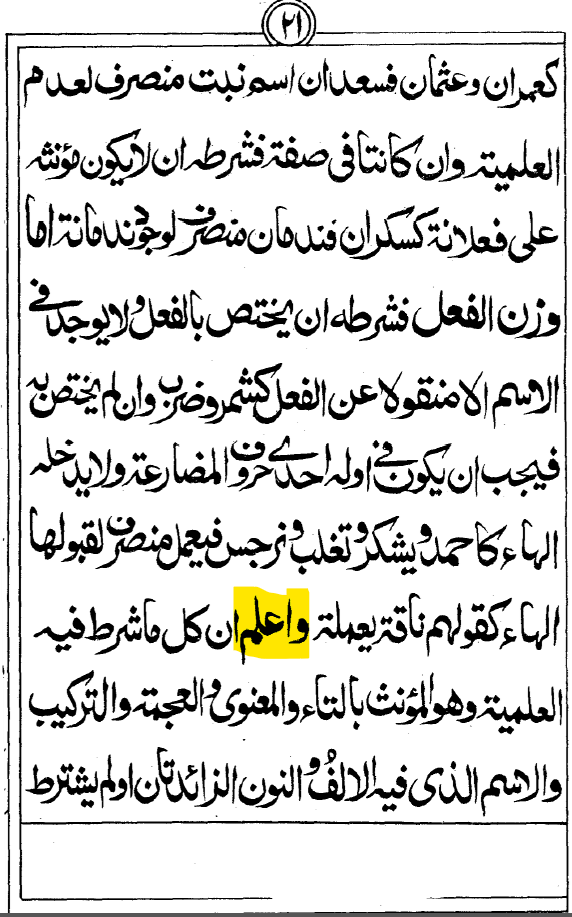 ٢١
كعمران وعثمان فسعدان اسم نبت منصرف لعدم
العلمية وان كانتا في صفة فشرطه ان لا يكون مؤنثه
على فعلانة كسكران فندمان منصرف لوجود ندمانة اما
وزن الفعل فشرطه ان يختص بالفعل ولا يوجد في
الاسم الا منقولا عن الفعل كشمر وضرب وان لم يختص به
فيجب ان يكون في اوله احدى حروف المضارعة ولا يدخله
الهاء كاحمد ويشكر وتغلب ونرجس فيعمل منصرف لقبولها
الهاء كقولهم ناقة يعملة واعلم ان كل ما شرط فيه
العلمية وهو المؤنث بالتاء والمعنوي والعجمة والتركيب
والاسم الذى فيه الالفُ والنون الزائدتان او لم يشترط